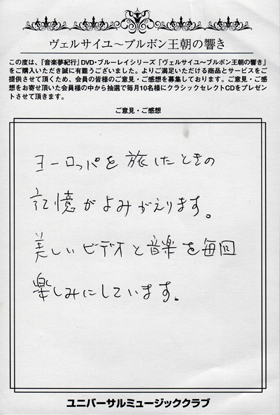 ヴェルサイユ～ブルボン王朝の響き
この度は、「音楽夢紀行」DVD・ブルーレイシリーズ『ヴェルサイユ～ブルボン王朝の響き』
をご購入いただき誠に有難うございました。よりご満足いただける商品とサービスをご
提供させて頂くため、会員の皆様のご意見・ご感想を募集しております。ご意見・ご感
想をお寄せ頂いた会員様の中から抽選で毎月10名様にクラシックセレクトCDをプレゼン
トさせて頂きます。
ご意見・ご感想
ヨーロッパを旅したときの
記憶がよみがえります。
美しいビデオと音楽を毎回
楽しみにしています。
ユニバーサルミュージッククラブ